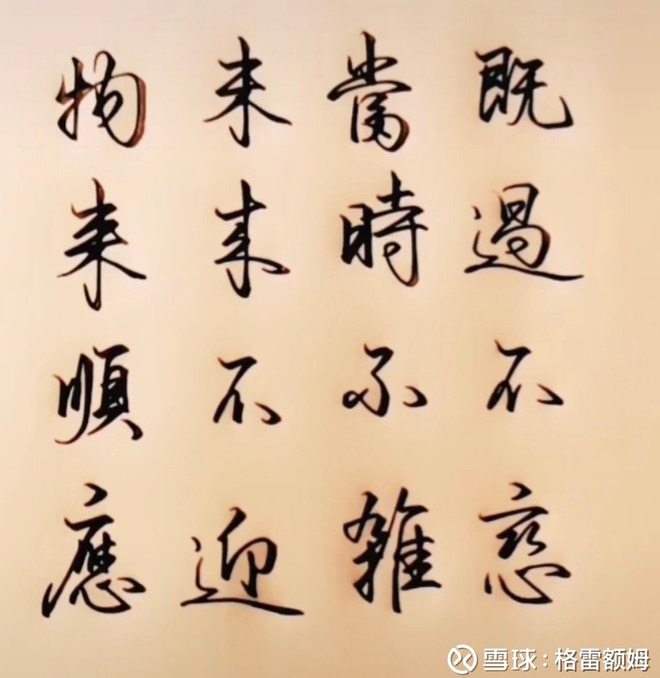 物来順應
未来不迎
當時不雜
既過不恋
雪球:格雷额姆